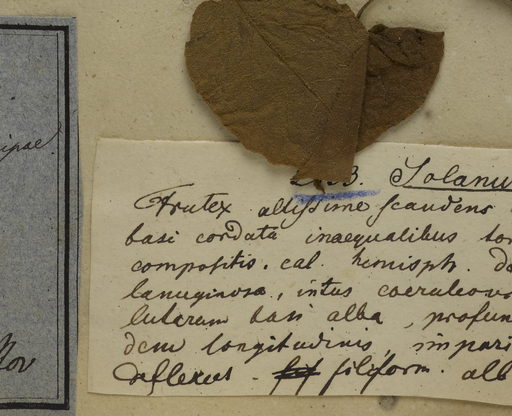 Solanu
Frutex altissime scandens
basi cordata inaequalibus
compositis. cal. hemisph.
lanuginosa, intus coeruleov
luteram basi alba, profun
dem longitudinis, impari
deflexus. filiform. alb
ipae
Nov